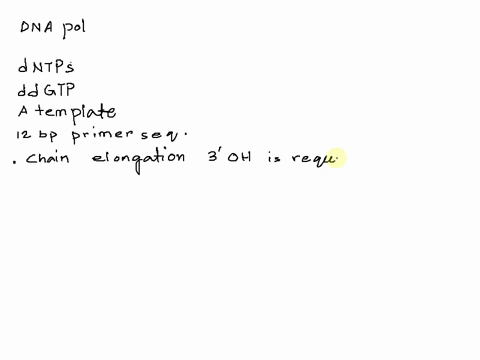 DNA pol
dNTPs
ddGTP
A template
12 bp primer seq.
. Chain elongation 3' OH is requ